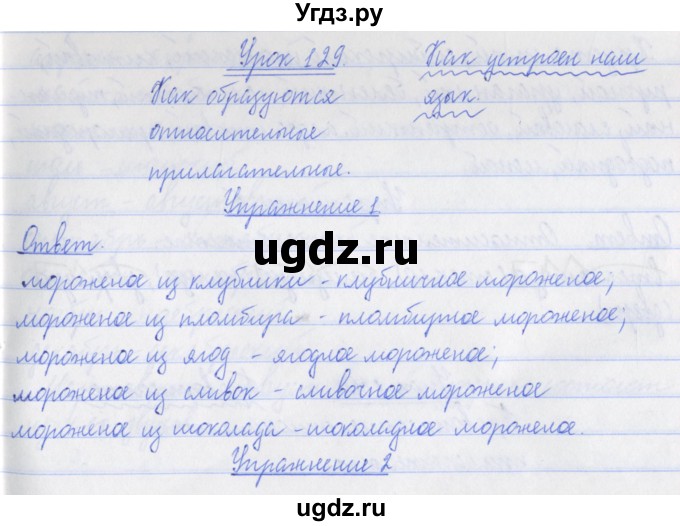 Угдз.ру
Урок 129. Как устроен наш
Как образуются язык.
относительные
прилагательные.
Упражнение 1
Ответ.
uгдз.ru
uгдз.ru
мороженое из клубники - клубничное мороженое;
мороженое из пломбира - пломбирное мороженое;
мороженое из ягод - ягодное мороженое;
мороженое из сливок - сливочное мороженое
мороженое из шоколада - шоколадное мороженое.
Упражнение 2
ugdz.ru